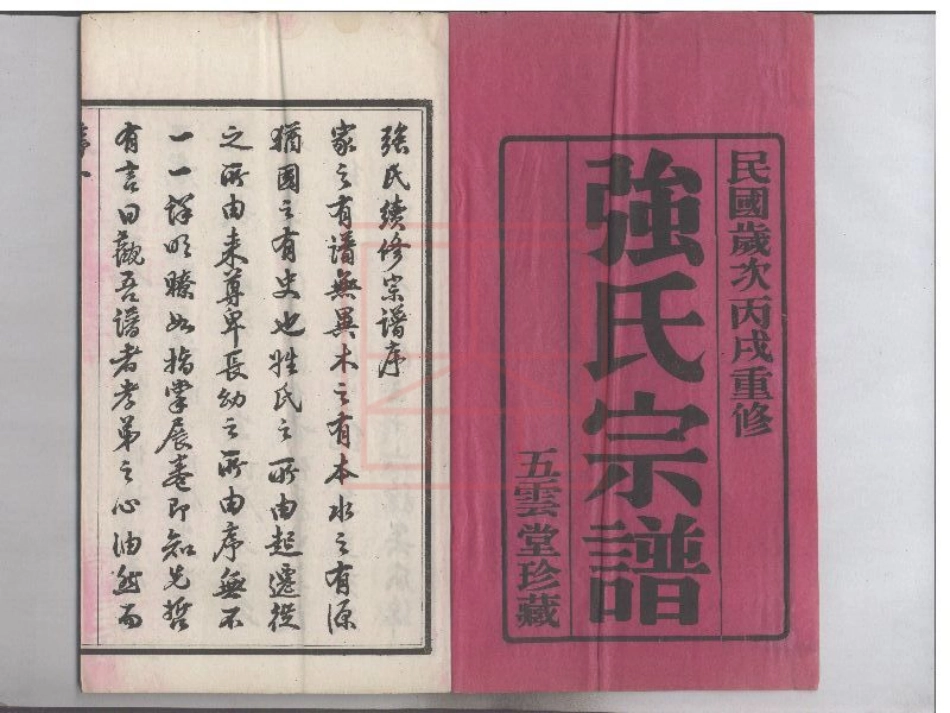 民國歲次丙戌重修
強氏宗譜
五雲堂珍藏
強氏續修宗譜序
家之有譜無異木之有本水之有源
猶國之有史也姓氏之所由起遷徙
之所由来尊卑長幼之所由序無不
一一詳明瞭如指掌展卷即知先哲
有言曰觀吾譜者孝弟之心油然而
序 一